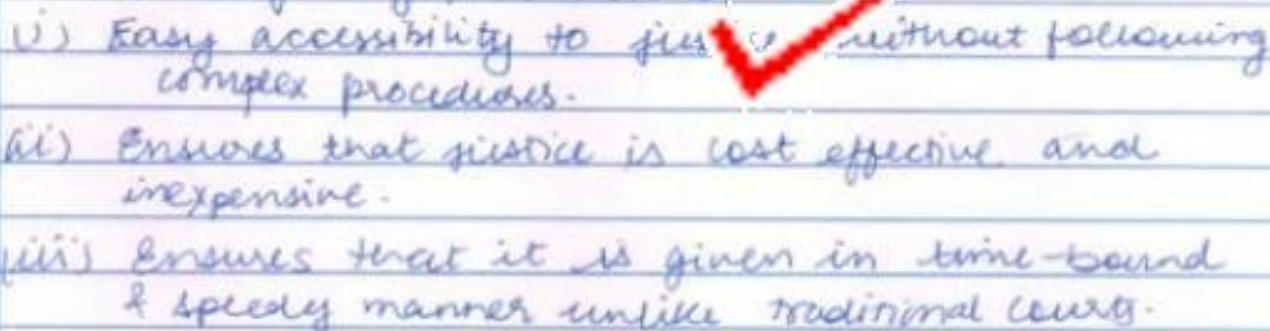 i) Easy accessibility to justice without following
complex procedures.
ii) Ensures that justice is cost effective and
inexpensive.
iii) Ensures that it is given in time-bound
& speedy manner unlike traditional courts.